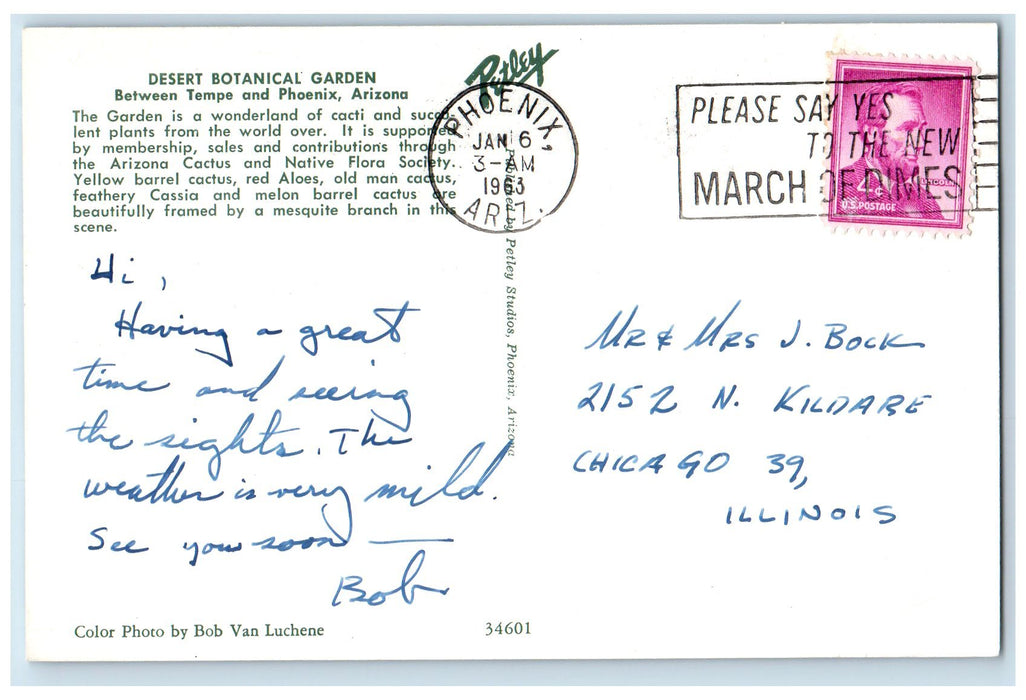 DESERT BOTANICAL GARDEN
Between Tempe and Phoenix, Arizona
The Garden is a wonderland of cacti and succulent
plants from the world over. It is supported
by membership, sales and contributions through
the Arizona Cactus and Native Flora Society.
Yellow barrel cactus, red Aloes, old man cactus,
feathery Cassia and melon barrel cactus are
beautifully framed by a mesquite branch in this
scene.
Petley
PHOENIX,
JAN 6
3-AM
1963
ARIZ.
PLEASE SAY YES
TO THE NEW
MARCH OF DIMES
4¢
LINCOLN
U.S. POSTAGE
Published by Petley Studios, Phoenix, Arizona
Hi,
Having a great
time and seeing
the sights. The
weather is very mild.
See you soon —
Bob
Mr & Mrs J. Bock
2152 N. KILDARE
CHICAGO 39,
ILLINOIS
Color Photo by Bob Van Luchene
34601